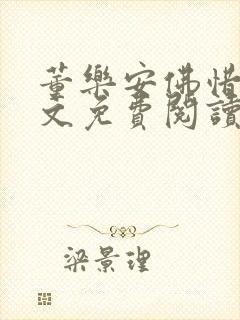 董樂安佛惜
文免費閱讀
梁景理